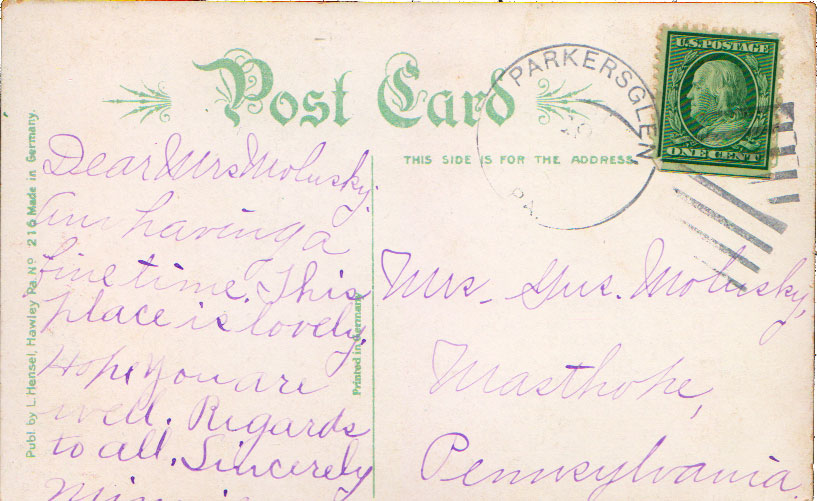 Post Card
THIS SIDE IS FOR THE ADDRESS
PARKERSGLEN
PA.
U.S. POSTAGE
ONE CENT
Publ. by L. Hensel, Hawley Pa. No 216 Made in Germany.
Printed in Germany
Dear Mrs Molusky.
Am having a
fine time. This
place is lovely,
Hope you are
well. Regards
to all. Sincerely
Mrs. Gus. Molusky,
Masthope,
Pennsylvania.